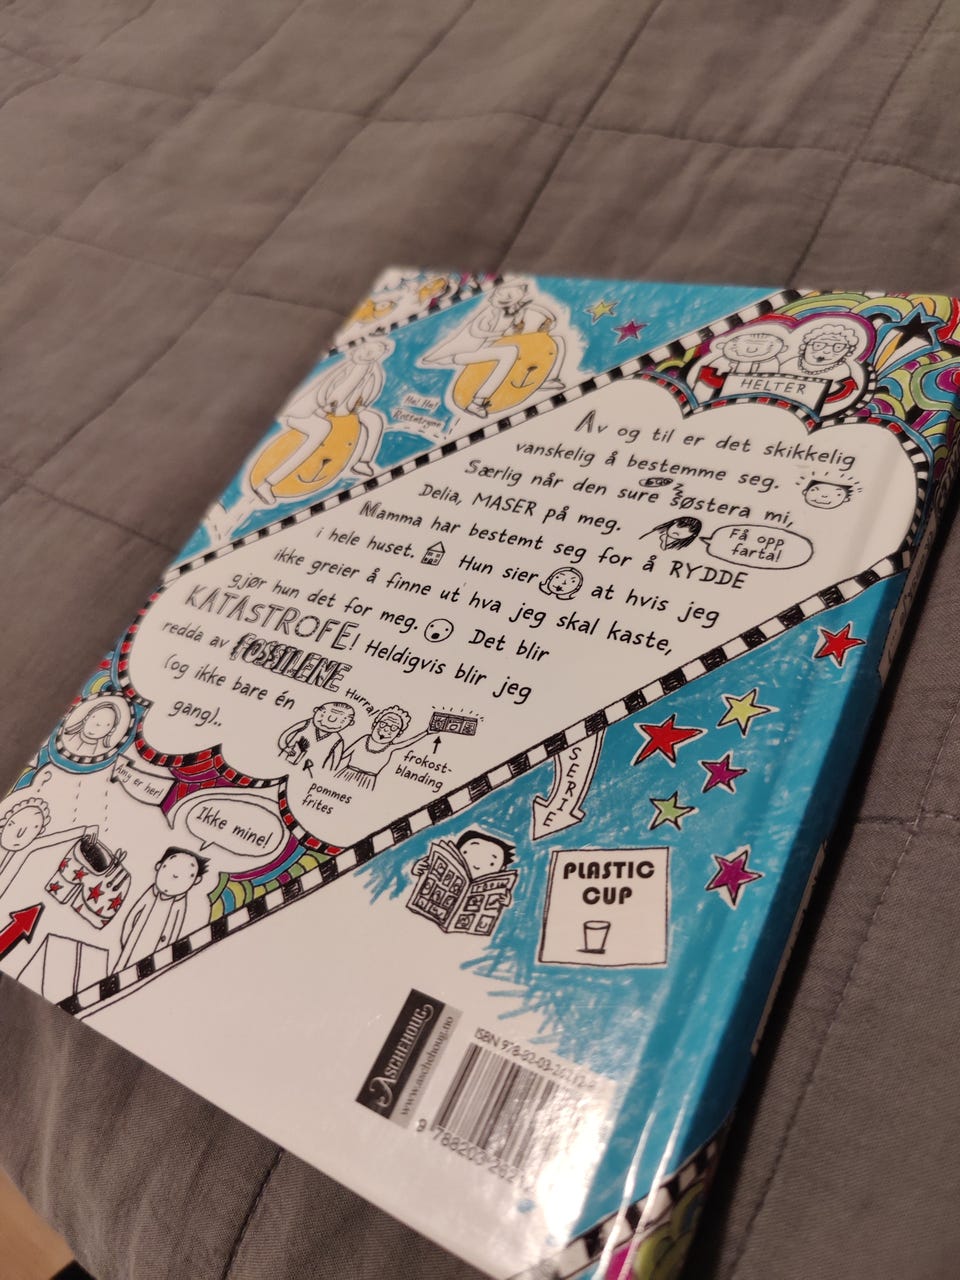 HELTER
Ha! Ha!
Av og til er det skikkelig
vanskelig å bestemme seg.
Særlig når den sure søstera mi,
Delia, MASER på meg.
Få opp
farta!
Mamma har bestemt seg for å RYDDE
i hele huset. Hun sier at hvis jeg
ikke greier å finne ut hva jeg skal kaste,
gjør hun det for meg. Det blir
KATASTROFE! Heldigvis blir jeg
redda av FOSSILENE
(og ikke bare én
gang)..
Hurra!
frokost-
blanding
pommes
frites
Amy er her!
?
Ikke mine!
SERIE
PLASTIC
CUP
ASCHEHOUG
www.aschehoug.no
ISBN 978-82-03-26212-
9 788203 26212